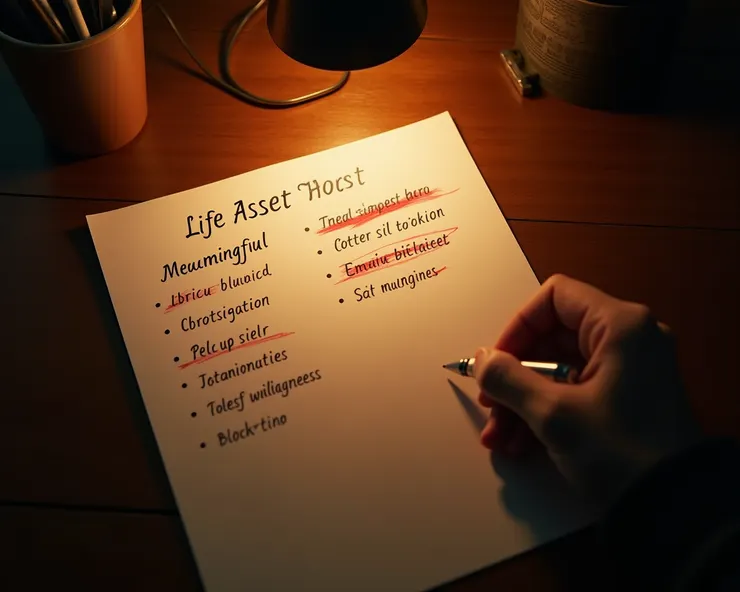 Life Asset Horst
Meuumingful
• Ibricu bluıoicd
• Cbrotsigation
• Pelc up sielr
• Jotanionaties
• Tolesf wiiliagneess
• Block-tino
• Tneal
• Cotter sil to:okion
• Emaiu
• Sát mungines